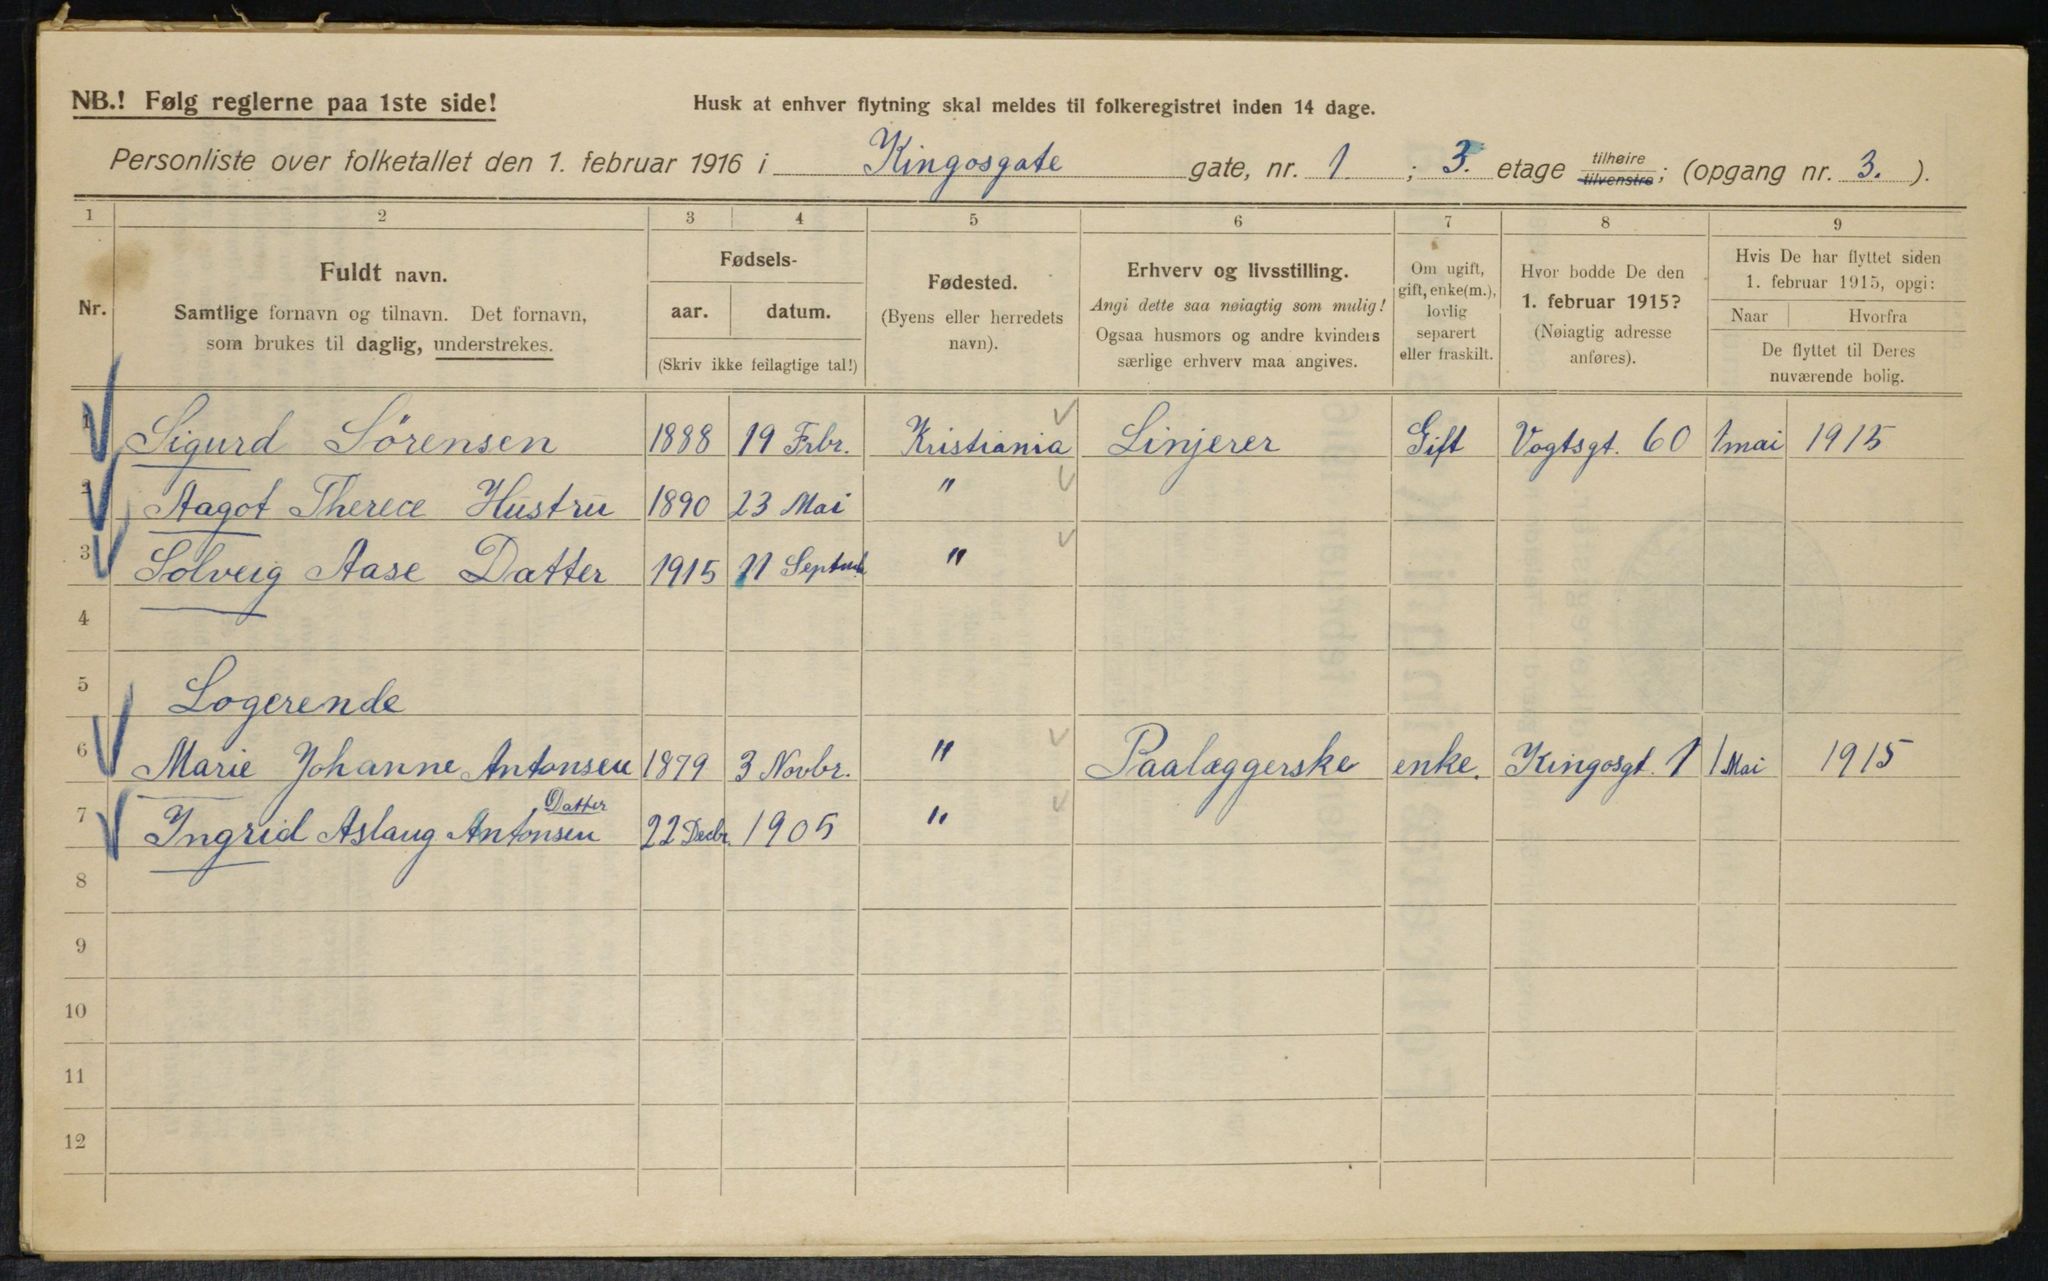 NB.! Følg reglerne paa 1ste side!
Husk at enhver flytning skal meldes til folkeregistret inden 14 dage.
Personliste over folketallet den 1. februar 1916 i Kingosgate gate, nr. 1. ; 3. etage tilhøire tilvenstre; (opgang nr. 3. ).
1 2 3 4 5 6 7 8 9
Nr.
Fuldt navn.
Samtlige fornavn og tilnavn. Det fornavn,
som brukes til daglig, understrekes.
Fødsels-
aar. datum.
(Skriv ikke feilagtige tal!)
Fødested.
(Byens eller herredets
navn).
Erhverv og livsstilling.
Angi dette saa nøiagtig som mulig!
Ogsaa husmors og andre kvinders
særlige erhverv maa angives.
Om ugift,
gift, enke(m.),
lovlig
separert
eller fraskilt.
Hvor bodde De den
1. februar 1915?
(Nøiagtig adresse
anføres).
Hvis De har flyttet siden
1. februar 1915, opgi:
Naar Hvorfra
De flyttet til Deres
nuværende bolig.
1 Sigurd Sörensen 1888 19 Frbr. Kristiania Linjerer Gift Vogtsgt. 60 1 mai 1915
2 Aagot Therece Hustru 1890 23 Mai "
3 Solveig Aase Datter 1915 11 "
4
5 Logerende
6 Marie Johanne Antonsen 1879 3 Novbr. " Paalæggerske enke. Kingosgt. 1 1 Mai 1915
Datter
7 Ingrid Aslaug Antonsen 22 Decbr. 1905 "
8
9
10
11
12